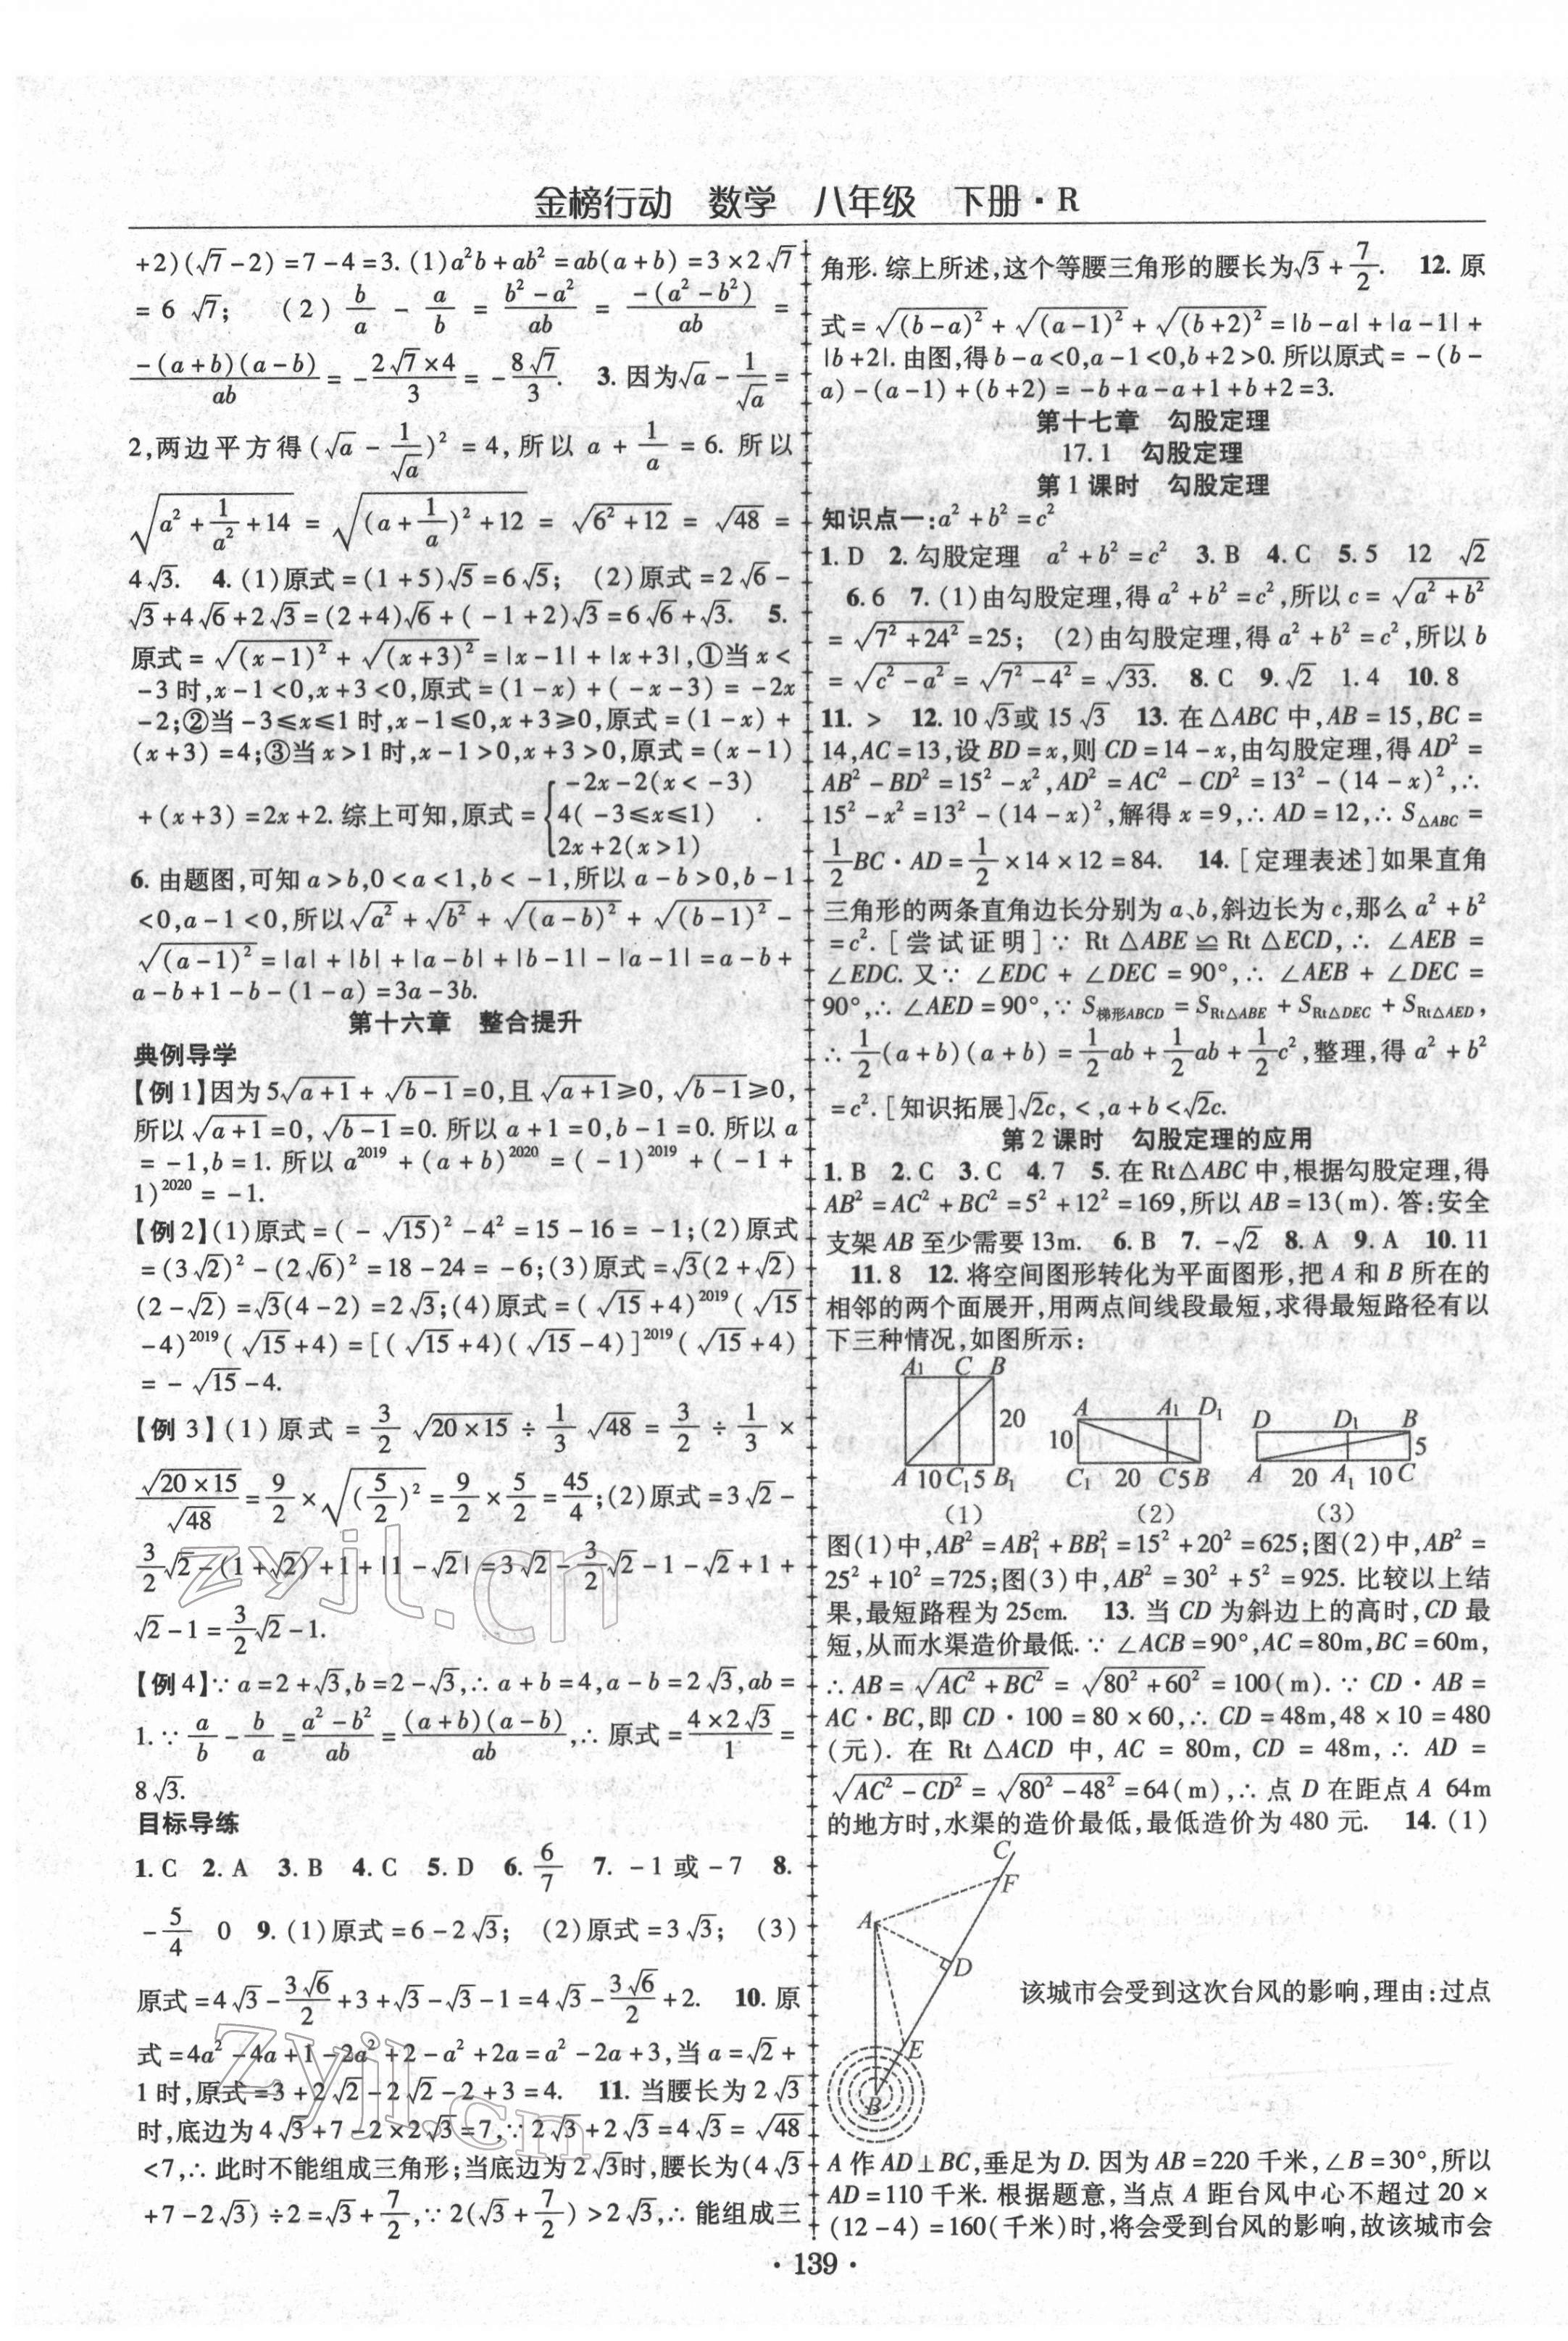 金榜行动 数学 八年级 下册·R
+2)(√7-2)=7-4=3.(1)a²b+ab²=ab(a+b)=3×2√7
=6√7; (2) b/a - a/b = (b²-a²)/ab = -(a²-b²)/ab =
-(a+b)(a-b)/ab = -(2√7×4)/3 = -8√7/3. 3. 因为√a-1/√a=
2,两边平方得(√a-1/√a)²=4,所以 a+1/a=6. 所以
√(a²+1/a²+14)=√((a+1/a)²+12)=√(6²+12)=√48=
4√3. 4.(1)原式=(1+5)√5=6√5; (2)原式=2√6-
√3+4√6+2√3=(2+4)√6+(-1+2)√3=6√6+√3. 5.
原式=√((x-1)²)+√((x+3)²)=|x-1|+|x+3|,①当x<
-3时,x-1<0,x+3<0,原式=(1-x)+(-x-3)=-2x
-2;②当-3≤x≤1时,x-1≤0,x+3≥0,原式=(1-x)+
(x+3)=4;③当x>1时,x-1>0,x+3>0,原式=(x-1)
+(x+3)=2x+2.综上可知,原式={-2x-2(x<-3)
4(-3≤x≤1)
2x+2(x>1) .
6. 由题图,可知a>b,0<a<1,b<-1,所以a-b>0,b-1
<0,a-1<0,所以√a²+√b²+√((a-b)²)+√((b-1)²)-
√((a-1)²)=|a|+|b|+|a-b|+|b-1|-|a-1|=a-b+
a-b+1-b-(1-a)=3a-3b.
第十六章 整合提升
典例导学
【例1】因为5√(a+1)+√(b-1)=0,且√(a+1)≥0,√(b-1)≥0,
所以√(a+1)=0,√(b-1)=0.所以a+1=0,b-1=0.所以a
=-1,b=1.所以a²⁰¹⁹+(a+b)²⁰²⁰=(-1)²⁰¹⁹+(-1+
1)²⁰²⁰=-1.
【例2】(1)原式=(-√15)²-4²=15-16=-1;(2)原式
=(3√2)²-(2√6)²=18-24=-6;(3)原式=√3(2+√2)
(2-√2)=√3(4-2)=2√3;(4)原式=(√15+4)²⁰¹⁹(√15
-4)²⁰¹⁹(√15+4)=[(√15+4)(√15-4)]²⁰¹⁹(√15+4)
=-√15-4.
【例3】(1)原式=3/2 √(20×15)÷1/3 √48=3/2÷1/3×
√(20×15)/√48=9/2×√((5/2)²)=9/2×5/2=45/4;(2)原式=3√2-
3/2√2-(1+√2)+1+|1-√2|=3√2-3/2√2-1-√2+1+
√2-1=3/2√2-1.
【例4】∵a=2+√3,b=2-√3,∴a+b=4,a-b=2√3,ab=
1.∵a/b-b/a=(a²-b²)/ab=(a+b)(a-b)/ab,∴原式=(4×2√3)/1=
8√3.
目标导练
1. C 2. A 3. B 4. C 5. D 6. 6/7 7. -1或-7 8.
-5/4 0 9.(1)原式=6-2√3; (2)原式=3√3; (3)
原式=4√3-3√6/2+3+√3-√3-1=4√3-3√6/2+2. 10. 原
式=4a²-4a+1-2a²+2-a²+2a=a²-2a+3,当a=√2+
1时,原式=3+2√2-2√2-2+3=4. 11. 当腰长为2√3
时,底边为4√3+7-2×2√3=7,∵2√3+2√3=4√3=√48
<7,∴此时不能组成三角形;当底边为2√3时,腰长为(4√3
+7-2√3)÷2=√3+7/2,∵2(√3+7/2)>2√3,∴能组成三
角形.综上所述,这个等腰三角形的腰长为√3+7/2. 12. 原
式=√((b-a)²)+√((a-1)²)+√((b+2)²)=|b-a|+|a-1|+
|b+2|.由图,得b-a<0,a-1<0,b+2>0.所以原式=-(b-
a)-(a-1)+(b+2)=-b+a-a+1+b+2=3.
第十七章 勾股定理
17.1 勾股定理
第1课时 勾股定理
知识点一:a²+b²=c²
1. D 2. 勾股定理 a²+b²=c² 3. B 4. C 5. 5 12 √2
6. 6 7.(1)由勾股定理,得a²+b²=c²,所以c=√(a²+b²)
=√(7²+24²)=25; (2)由勾股定理,得a²+b²=c²,所以b
=√(c²-a²)=√(7²-4²)=√33. 8. C 9. √2 1.4 10. 8
11. > 12. 10√3或15√3 13. 在△ABC中,AB=15,BC=
14,AC=13,设BD=x,则CD=14-x,由勾股定理,得AD²=
AB²-BD²=15²-x²,AD²=AC²-CD²=13²-(14-x)²,∴
15²-x²=13²-(14-x)²,解得x=9,∴AD=12,∴S△ABC=
1/2BC·AD=1/2×14×12=84. 14. [定理表述]如果直角
三角形的两条直角边长分别为a、b,斜边长为c,那么a²+b²
=c².[尝试证明]∵Rt△ABE≌Rt△ECD,∴∠AEB=
∠EDC.又∵∠EDC+∠DEC=90°,∴∠AEB+∠DEC=
90°,∴∠AED=90°,∵S梯形ABCD=SRt△ABE+SRt△DEC+SRt△AED,
∴1/2(a+b)(a+b)=1/2ab+1/2ab+1/2c²,整理,得a²+b²
=c².[知识拓展]√2c,<,a+b<√2c.
第2课时 勾股定理的应用
1. B 2. C 3. C 4. 7 5. 在Rt△ABC中,根据勾股定理,得
AB²=AC²+BC²=5²+12²=169,所以AB=13(m).答:安全
支架AB至少需要13m. 6. B 7. -√2 8. A 9. A 10. 11
11. 8 12. 将空间图形转化为平面图形,把A和B所在的
相邻的两个面展开,用两点间线段最短,求得最短路径有以
下三种情况,如图所示:
A1 C B
20
A 10 C1 5 B1
(1)
A A1 D1
10
C1 20 C 5 B
(2)
D D1 B
5
A 20 A1 10 C
(3)
图(1)中,AB²=AB₁²+BB₁²=15²+20²=625;图(2)中,AB²=
25²+10²=725;图(3)中,AB²=30²+5²=925.比较以上结
果,最短路程为25cm. 13. 当CD为斜边上的高时,CD最
短,从而水渠造价最低.∵∠ACB=90°,AC=80m,BC=60m,
∴AB=√(AC²+BC²)=√(80²+60²)=100(m).∵CD·AB=
AC·BC,即CD·100=80×60,∴CD=48m,48×10=480
(元).在Rt△ACD中,AC=80m,CD=48m,∴AD=
√(AC²-CD²)=√(80²-48²)=64(m),∴点D在距点A 64m
的地方时,水渠的造价最低,最低造价为480元. 14.(1)
C
F
A
D
E
B
该城市会受到这次台风的影响,理由:过点
A作AD⊥BC,垂足为D.因为AB=220千米,∠B=30°,所以
AD=110千米.根据题意,当点A距台风中心不超过20×
(12-4)=160(千米)时,将会受到台风的影响,故该城市会
·139·
zyjl.cn
zyjl.cn